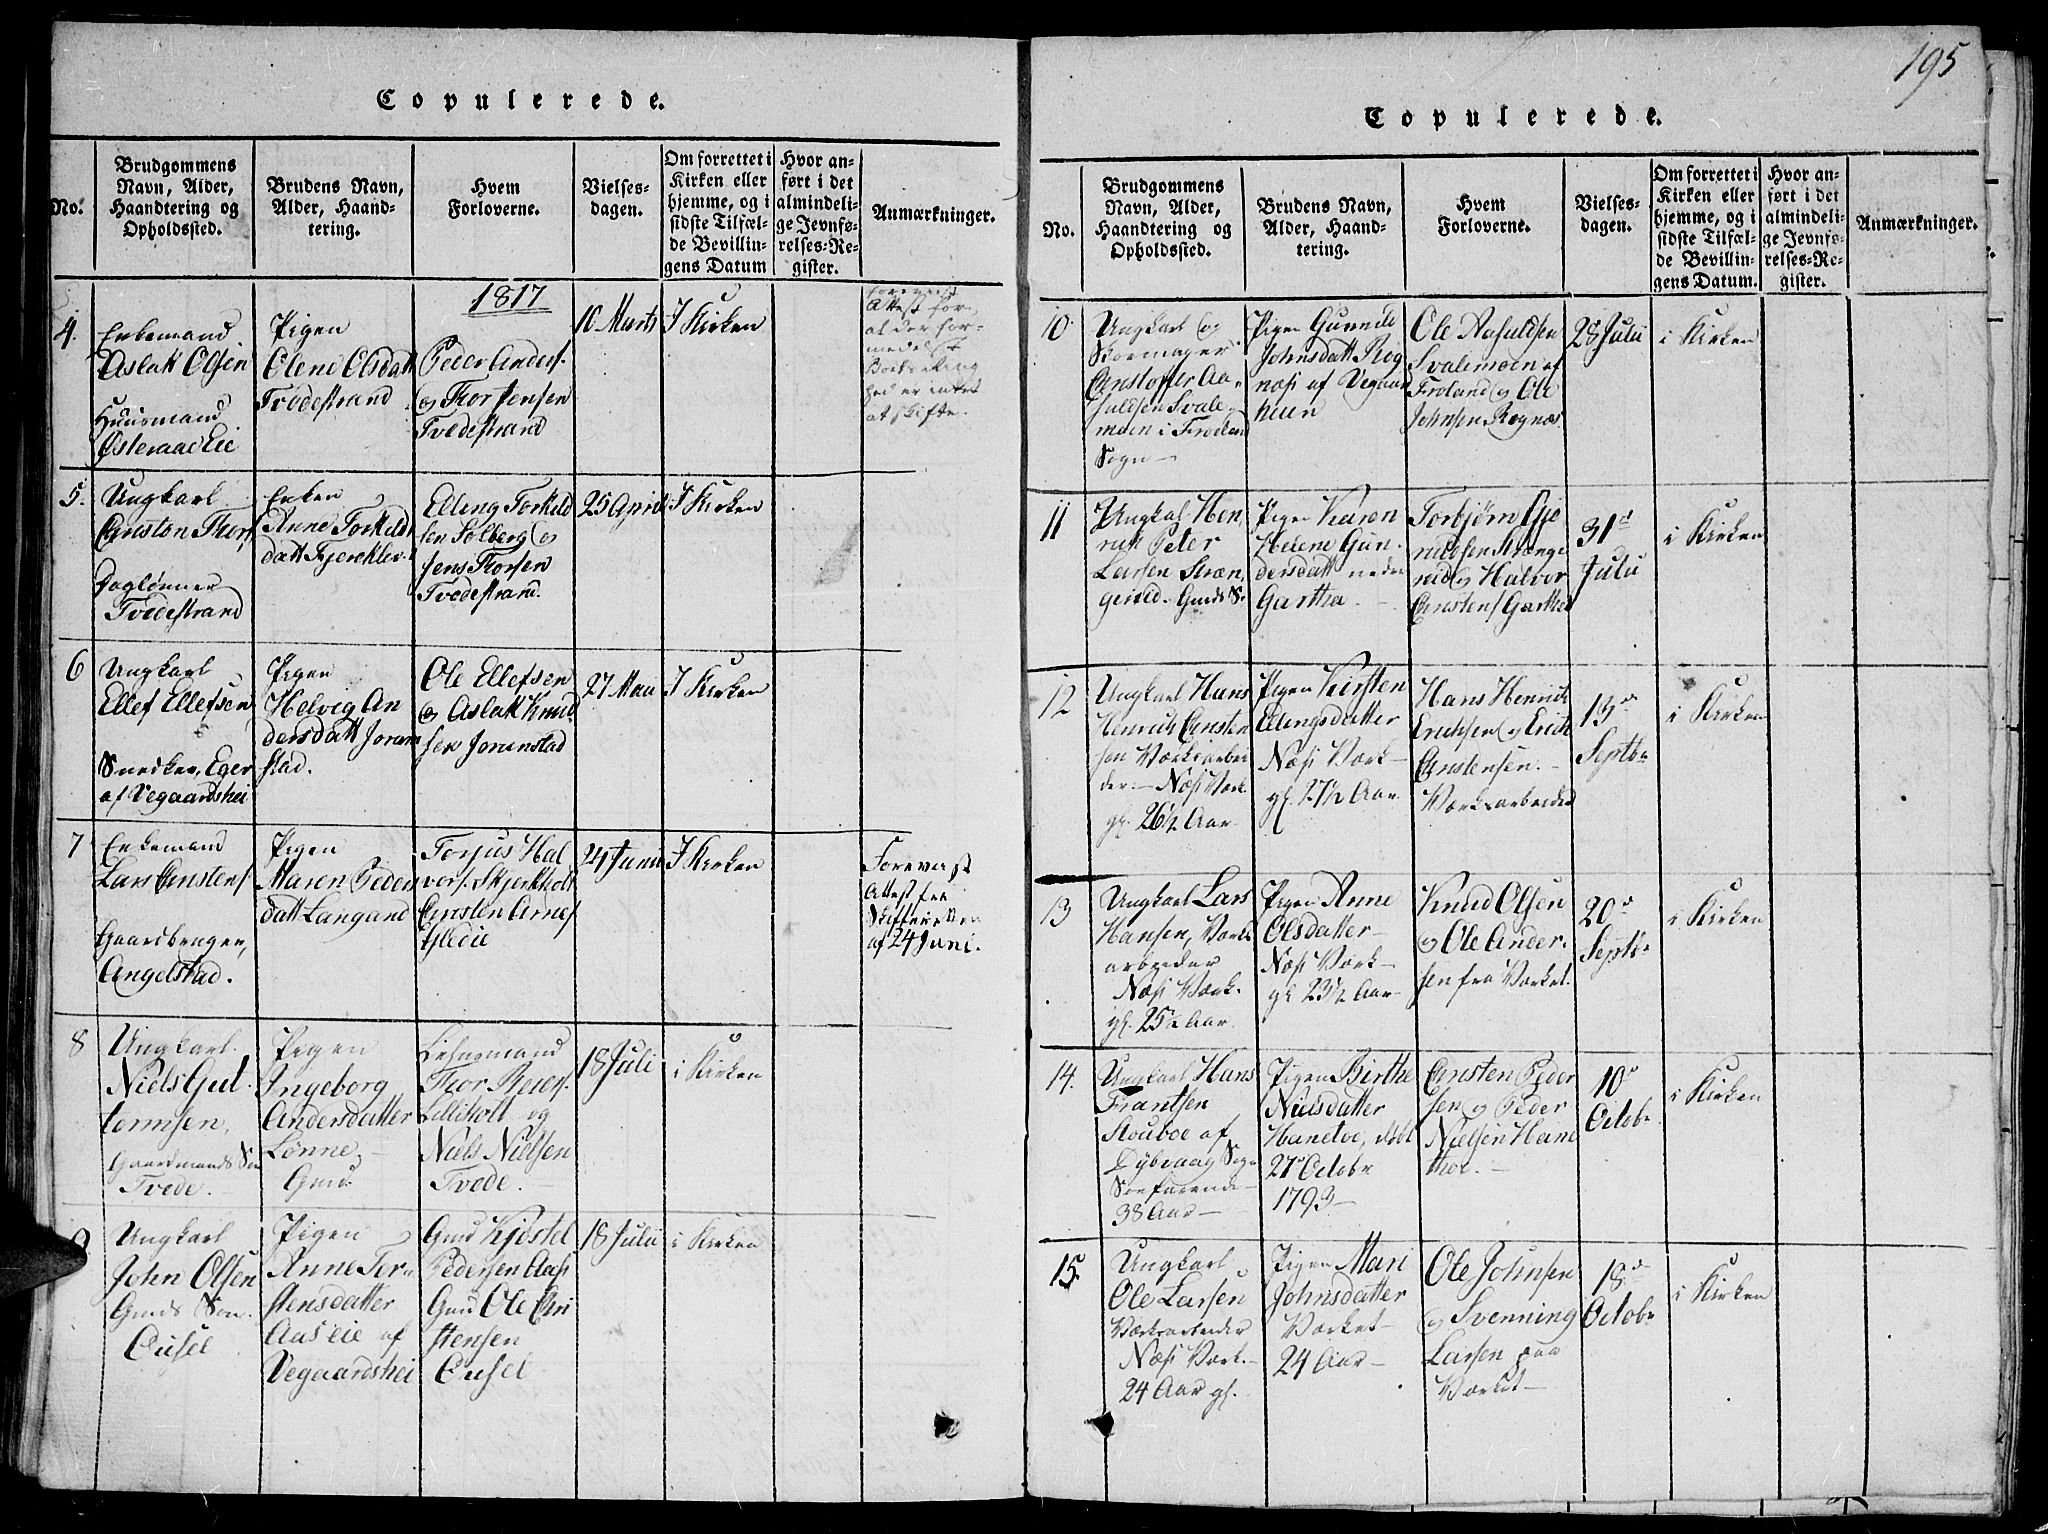 195
Copulerede.
No.
Brudgommens Navn, Alder, Haandtering og Opholdssted.
Brudens Navn, Alder, Haandtering.
Hvem Forloverne.
Vielsesdagen.
Om forrettet i Kirken eller hjemme, og i sidste Tilfælde Bevillingens Datum
Hvor anført i det almindelige Jevnførelses-Register.
Anmærkninger.
1817
4.
Enkemand
Aslak Olsen
Huusmand
Østeraae Eie
Pigen
Olene Olsdatt
Tvedestrand
Peder Anders.
og Thor Jensen
Tvedestrand
10 Marts
I Kirken
Attest for,
at der formedelst
at skifte.
5.
Ungkarl
Christen Thors.
Daglønner
Tvedestrand
Enken
Anne Torkilds
datt Fjerekleiv
Elling Torkild
sen Solberg og
Jens Thorsen
Tvedestrand.
25 April
I Kirken
6
Ungkarl
Ellef Ellefsen
Snedker, Eger
af Vegaardshei
Pigen
Helvig An
dersdatt Joren
stad.
Ole Ellefsen
og Aslak Knud
sen Jorenstad
27 Mai
I Kirken
7
Enkemand
Lars Christens
Gaardbruger,
Angelstad.
Pigen
Maren Peders
datt Langand
Torjus Hal
vors. Skjerkholt
Christen Arnes
Glerie
24 Juni
I Kirken
Foreviist
Attest fra
Skifteretten
af 24 Juni.
8
Ungkarl
Niels Gut
tormsen,
Gaardmands Søn
Tvede.
Pigen
Ingeborg
Andersdatter
Lønne
Gmd.
Lehnsmand
Thor Reiers.
Lilleholt og
Niels Nielsen
Tvede.
18 Juli
i Kirken
9
Ungkarl
John Olsen
Gmds Søn
Ousel
Pigen
Anne Tor-
stensdatter
Aas Eie af
Vegaardshei
Gmd Kjøstel
Pedersen Aas
Gmd Ole Chri
stensen
Ousel
18 Julii
i Kirken
Copulerede.
No.
Brudgommens Navn, Alder, Haandtering og Opholdssted.
Brudens Navn, Alder, Haandtering.
Hvem Forloverne.
Vielsesdagen.
Om forrettet i Kirken eller hjemme, og i sidste Tilfælde Bevillingens Datum.
Hvor anført i det almindelige Jevnførelses-Register.
Anmærkninger.
10.
Ungkarl og
Skoemager
Christoffer Aa-
suldsen Svale-
moen i Froland
Sogn
Pigen Gunnild
Johnsdatt Rog
næs af Vegaar
heien
Ole Aasuldsen
Svalemoen af
Froland og Ole
Johnsen Rognæs
28 Julii
i Kirken
11
Ungkarl Hen
rich Peter
Larsen Stræn
gereid. Gmds S.
Pigen Karen
Helene Gun
dersdatt nedre
Gartha
Torbjørn Gje
ruldsen Strænge
reid og Halvor
Christens Gartha
31d
Julii
i Kirken
12
Ungkarl Hans
Henrich Christen
sen Værksarbei
der. Næss Værk.
gl. 26½ Aar
Pigen Kirsten
Ellingsdatter
Næss Værk
gl. 27½ Aar
Hans Henrich
Erichsen og Erich
Christensen.
Værksarbeider
13de
Septbr
i Kirken
13
Ungkarl Lars
Hansen, Værks
arbeider
Næss Værk.
gl. 25½ Aar.
Pigen Anne
Olsdatter
Næss Værk
gl 23½ Aar
Knud Olsen
og Ole Ander-
sen fra Værket.
20de
Septbr
i Kirken
14.
Ungkarl Hans
Frantsen
Stouboe af
Dybvaag Sogn
Søefarende
38 Aar
Pigen Birthe
Nielsdatter
Hanetoe, døbt
27de Octobr
1793
Christen Peder
sen og Peder
Nielsen Hane
thoe.
10de
Octobr
i Kirken
15.
Ungkarl
Ole Larsen
Værksarbeider
Næss Værk.
24 Aar gl.
Pigen Mari
Johnsdatter
Værket
24 Aar
Ole Johnsen
og Svenning
Larsen paa
Værket
18de
Octobr
i Kirken